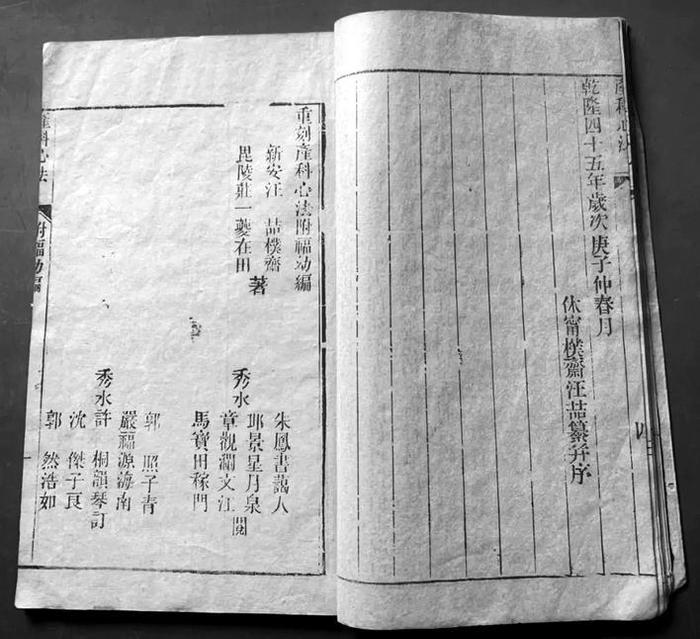 產科心法
乾隆四十五年歲次庚子仲春月
休甯樸齋汪喆纂并序
四
重刻產科心法附福幼編
新安汪　喆樸齋
毘陵莊一夔在田
著
朱鳳書藹人
秀水
邶景星月泉
章觀瀾文江
閱
馬寶田稼門
郭　照子青
嚴福源海南
秀水許　桐韻琴訂
沈　傑子良
郭　然浩如
產科心法
附福幼編
一